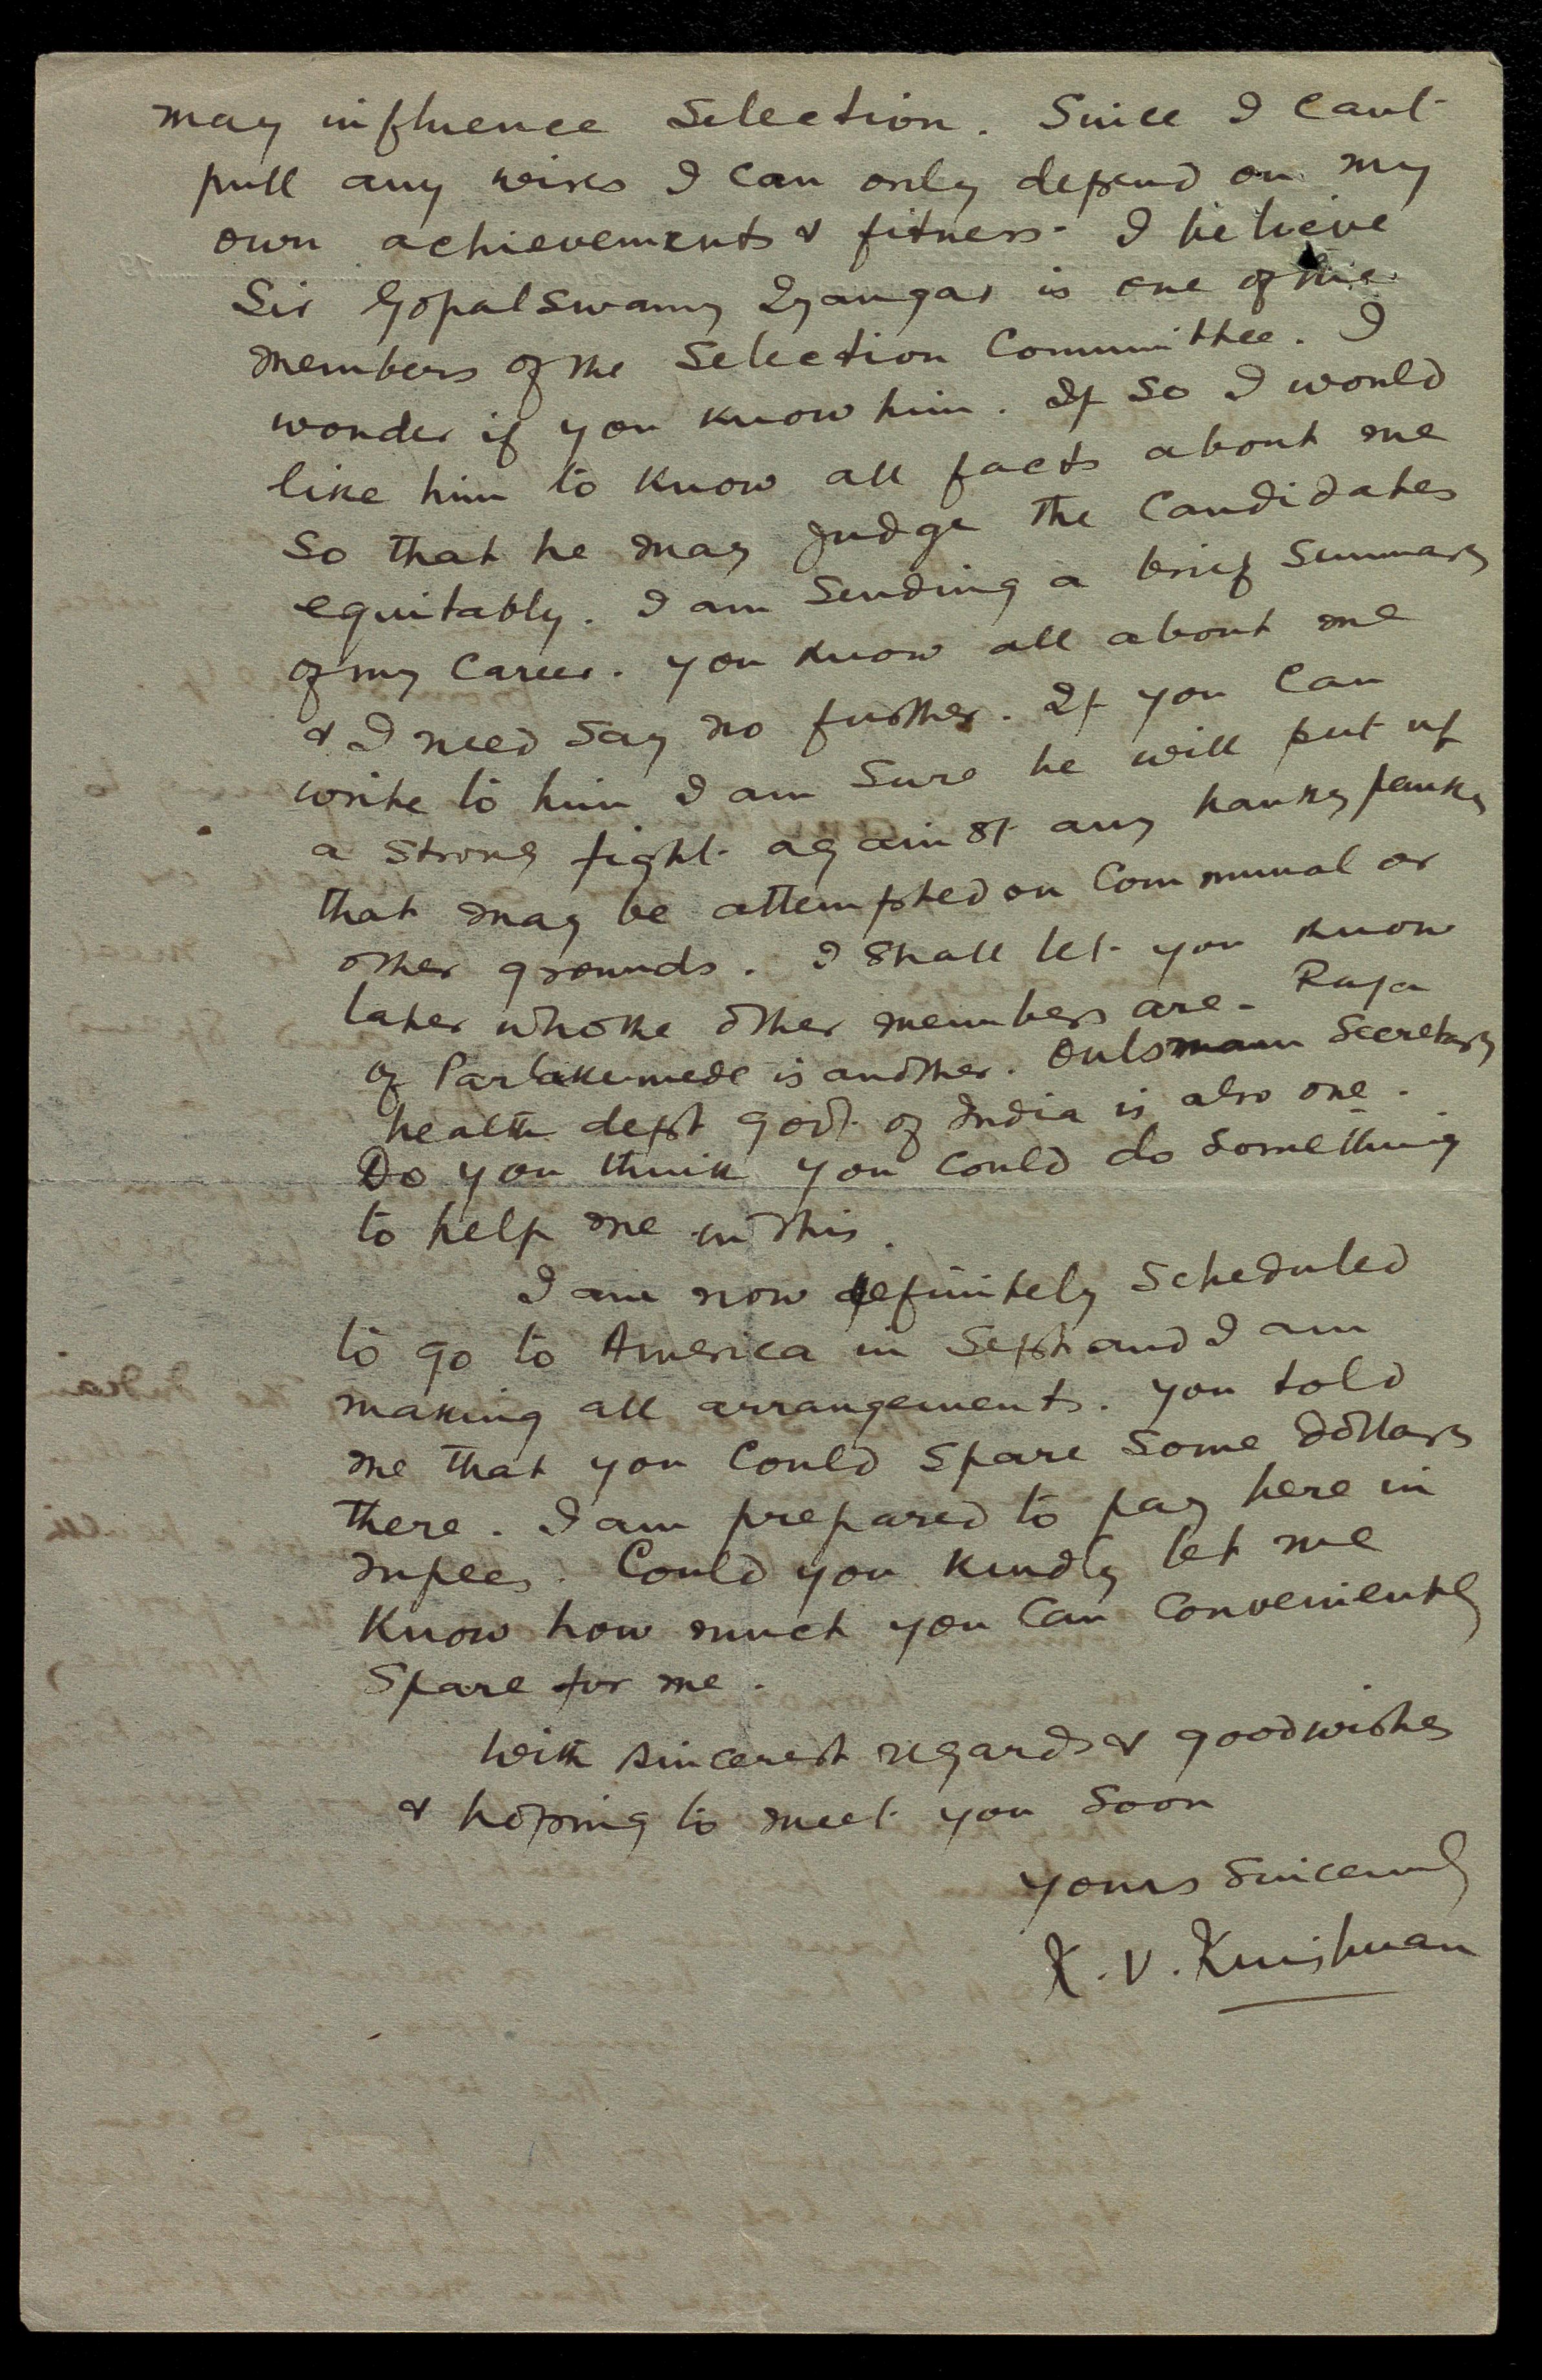 may influence Selection. Since I can't
pull any wires I can only depend on my
own achievements & fitness. I believe
Sir Gopalswamy Iyangar is one of the
members of the Selection Committee. I
wonder if you know him. If so I would
like him to know all facts about me
so that he may judge the candidates
equitably. I am sending a brief summary
of my career. you know all about me
& I need say no further. If you can
write to him I am sure he will put up
a strong fight against any hanky panky
that may be attempted on Communal or
other grounds. I shall let you know
later who the other members are. Raja
of Parlakemede is another. Secretary
health dept govt. of India is also one.
Do you think you could do something
to help me in this.
I am now definitely scheduled
to go to America in Sept and I am
making all arrangements. you told
me that you could spare some dollars
there. I am prepared to pay here in
rupees. Could you kindly let me
know how much you can conveniently
spare for me.
With sincerest regards & good wishes
& hoping to meet you soon
yours sincerely
K. V. Krishnan